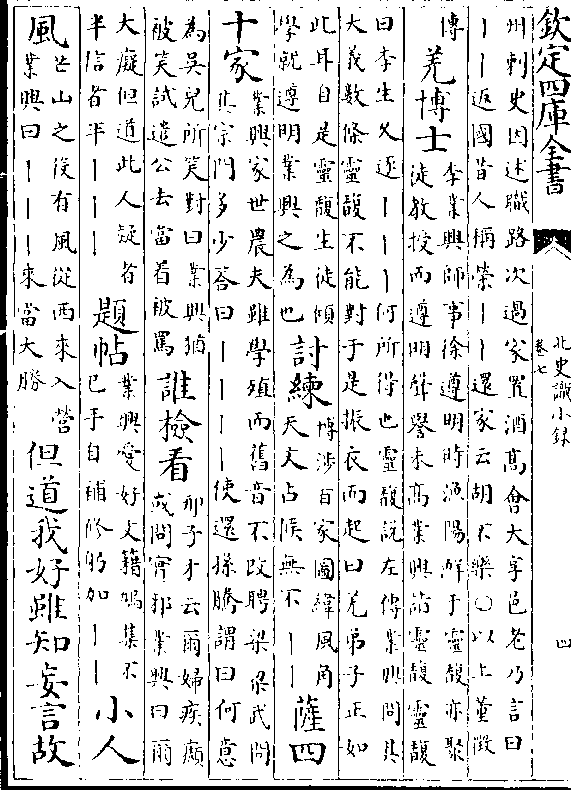 欽定四庫全書
北史識小錄
卷七
四
州刺史因述職路次過家置酒髙會大享邑老乃言曰
丨丨返國昔人稱榮丨丨還家云胡不樂〇以上董徵
傳
羌博士
李業興師事徐遵明時漁陽鮮于靈馥亦聚
徒教授而遵明聲譽未髙業興詣靈馥靈馥
曰李生乆逐丨丨丨何所得也靈馥説左傳業興問其
大義數條靈馥不能對于是振衣而起曰羌弟子正如
此耳自是靈馥生徒傾
學就遵明業興之為也
討練
博涉百家圖緯風角
天文占候無不丨丨
薩四
十家
業興家世農夫雖學殖而舊音不改聘梁梁武問
其宗門多少答曰丨丨丨丨使還孫騰謂曰何意
為吳兒所笑對曰業興猶
被笑試遣公去當着被罵
誰檢看
邢子才云爾婦疾癲
或問實邪業興曰爾
大癡但道此人疑者
半信者半丨丨丨
題帖
業興愛好文籍鳩集不
已手自補修躬加丨丨
小人
風
芒山之役有風從西來入營
業興曰丨丨丨丨來當大勝
但道我好雖知妄言故